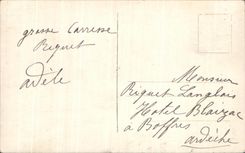 grosse Carresse
Riquet
adèle
Monsieur
Riquet Langlois
Hotel Blaizac
à Boffres
ardèche